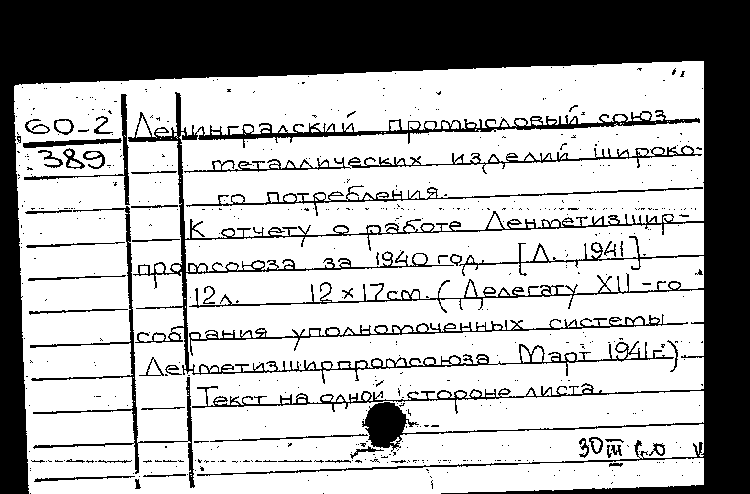 60-2 Ленинградский промысловый союз
389 металлических изделий широко-
го потребления.
К отчету о работе Ленметизшир-
промсоюза за 1940 год. [Л., 1941].
12л. 12×17см. (Делегату XII-го
собрания уполномоченных системы
Ленметизширпромсоюза. Март 1941г.)
Текст на одной стороне листа.
30 III 60